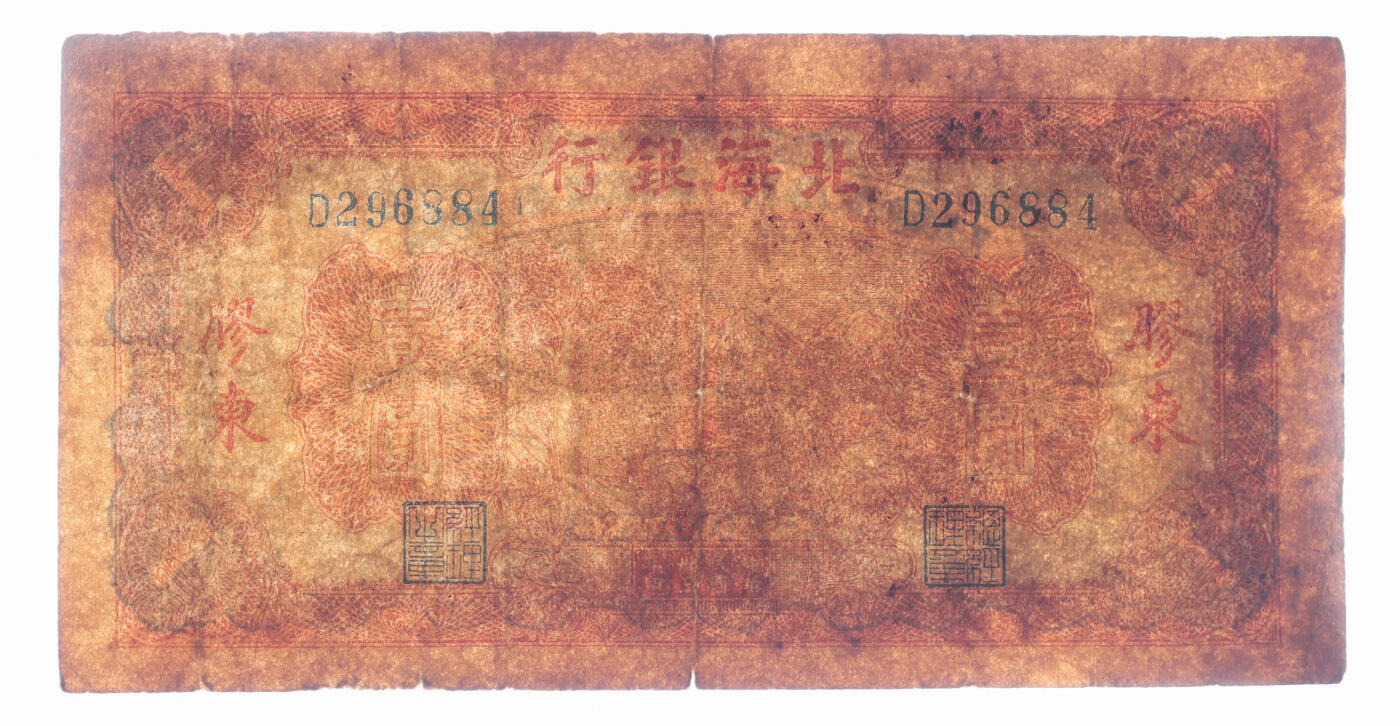 北海銀行
D296884
D296884
膠東
壹圓
壹圓
膠東
總經理章